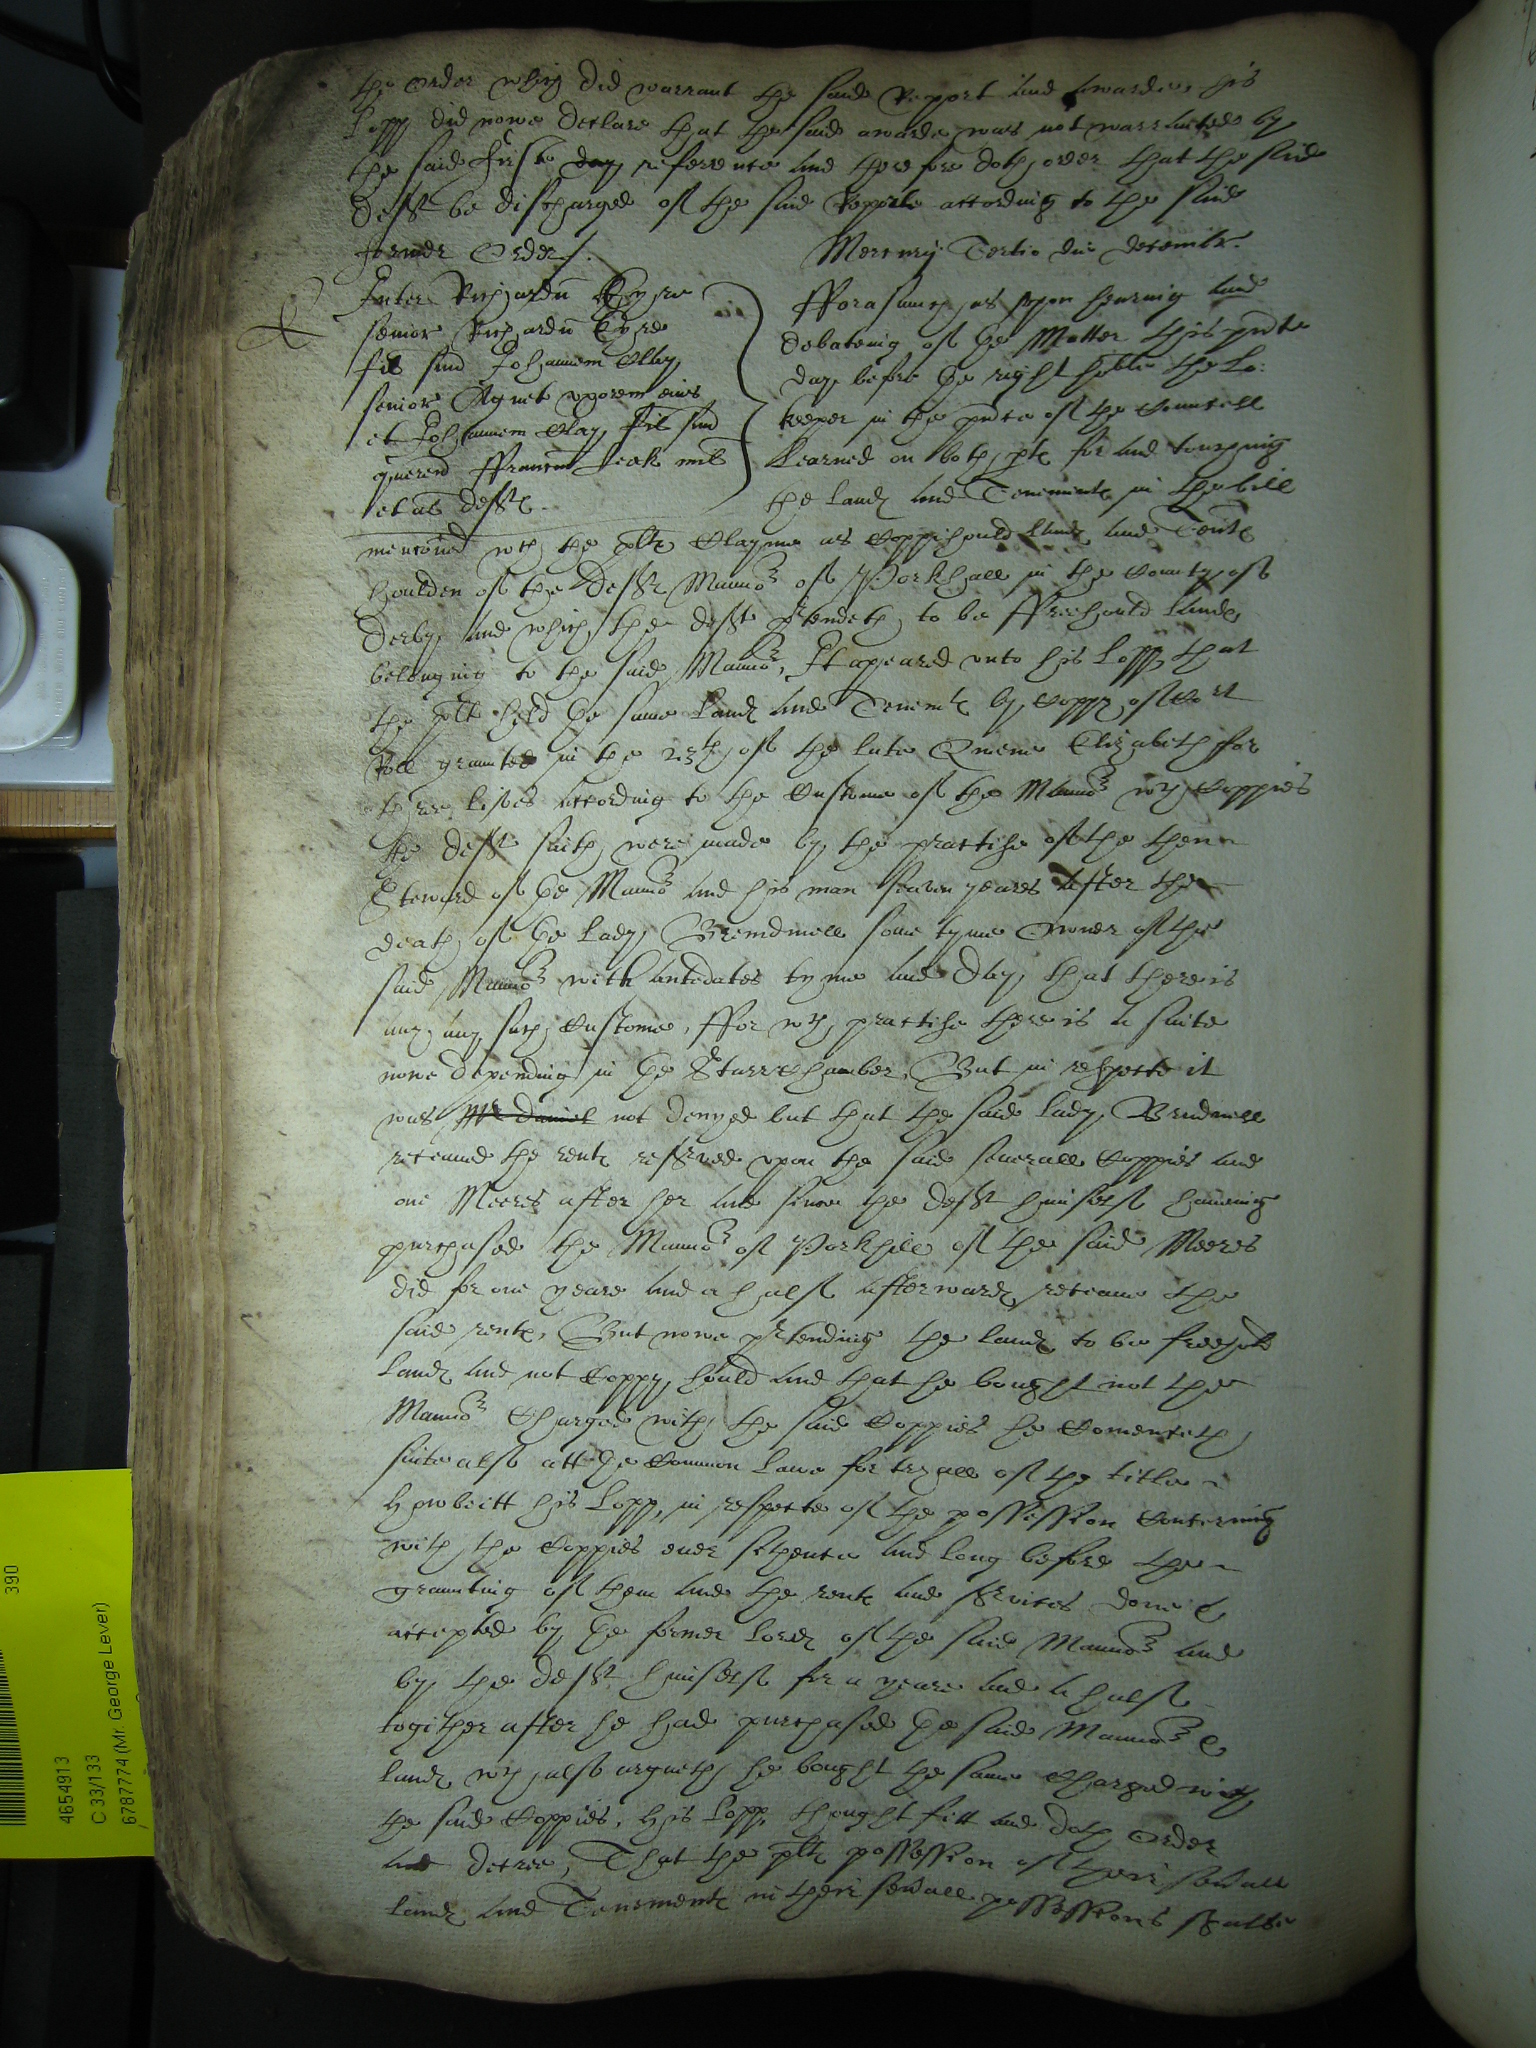 the order which did warrant the said Report and awarde, his
Lopp did nowe declare that the said awarde was not warranted by
the said first day reference and therefore doth order that the said
deft be discharged of the said according to the said
former Order /.
Mercurij Tertio die decembr.
Inter Richardu Eyre
senior Richardu Eyre
fil suu Johannem Clay
senior Agnet uxorem eius
et Johannem Clay fil suu
querend ffranc Leek mil
et al deft.
fforasmuch as upon hearing and
debateing of ye Matter this pnte
day before ye right hoble the Lo:
keeper in the pnce of the Councell
Learned on both pte for and touching
the Land and Tenement in the bill
mencoed wch the plt Clayme as Coppihould Land and Tent
houlden of the deft Manno of Parkhall in the County of
Derby and which the deft ptendeth to be ffreehould Lande
belonging to the said Manno, It apeared vnto his Lopp, that
the plt held ye same Land and Tenemt by Coppy of Cort
Roll graunted in the 23th of the late Queene Elizabeth for
three lives according to the Custome of the Manno wch Coppies
the deft saith were made by the practise of the then
Steward of ye Manno and his man seaven yeares after the
death of ye Lady some tyme Owner of the
said Manno with antedates tyme and Day, that there is
any such Custome, ffor wch practise there is a suite
nowe depending in ye Starrechamber, But in respecte it
was Mr Daniel not denyed but that the said Lady
receaued the rent reserued vpon the said seuerall Coppies and
one Meeres after her and since the deft himself haueing
purchased the Manno of Parkhill of the said Meeres
did for one yeare and a half afterward receaue the
said rent, But nowe ptending the land to be freehould
Land and not Coppyhould and that he bought not the
Manno Charged with the said Coppies he Comenceth
suite also att ye Common Lawe for tryall of the title
Howbeitt his Lopp, in respecte of the possession Concerning
with the Coppies euer sithence and long before the
graunting of them and the rent and seruices done &
accepted by ye former Lord of the said Manno and
by the deft himself for a yeare and a half
togither after he had purchased ye said Manno &
Land wch also argueth he bought the same Charged with
the said Coppies, His Lopp, thought fitt and doth Order
and decree, That the plt possession of their seuall
Land and Tenement in their seuall possessions shalbe
390
4654913
C 33/133
6787774 (Mr. George Lever)